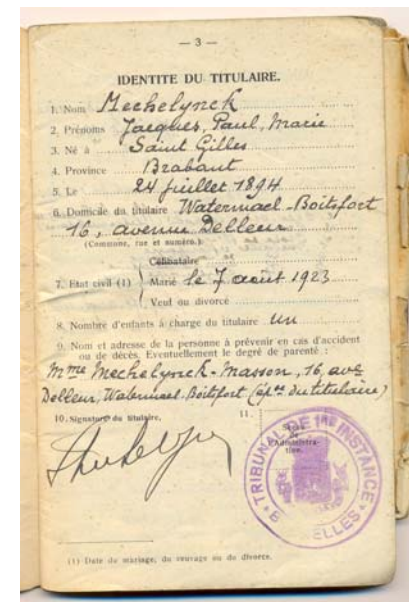 — 3 —
IDENTITE DU TITULAIRE.
1. Nom Mechelynck
2. Prénoms Jacques, Paul, Marie
3. Né à Saint Gilles
4. Province Brabant
5. Le 24 juillet 1894
6. Domicile du titulaire Watermael-Boitsfort
16, avenue Delleur
(Commune, rue et numéro.)
Célibataire
7. Etat civil (1) Marié le 7 août 1923
Veuf ou divorcé
8. Nombre d'enfants à charge du titulaire un
9. Nom et adresse de la personne à prévenir en cas d'accident
ou de décès. Eventuellement le degré de parenté :
Mme Mechelynck-Masson, 16, ave
Delleur, Watermael-Boitsfort (épse du titulaire)
10. Signature du titulaire.
11. Sceau
de
l'Administra-
tion.
TRIBUNAL DE 1RE INSTANCE
BRUXELLES
(1) Date du mariage, du veuvage ou du divorce.